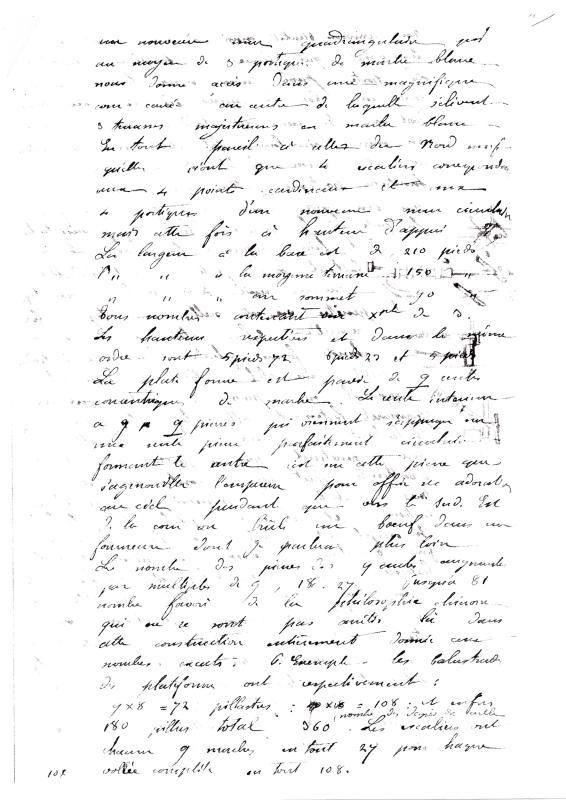 un nouveau mur quadrangulaire
au moyen de 3 portiques de marbre blanc
nous donne accès dans une magnifique
cour carrée au centre de laquelle s'élèvent
3 terrasses majestueuses en marbre blanc
En tout pareil à celles du Nord
n'ont que 4 escaliers correspondant
aux 4 points cardinaux et
4 portiques d'un nouveau mur circulaire
mais cette fois à hauteur d'appui
La largeur à la base est de 210 pieds
" " à la moyenne terrasse 150 "
" " au sommet 90 "
Tous nombres contenant de 3.
Les hauteurs respectives et dans le même
ordre sont 5 pieds 72 6 pieds 23 et 5 pieds
La plate forme est pavée de 9 cercles
concentriques de marbre. Le cercle intérieur
a 9 pierres qui viennent s'appuyer sur
une seule pierre parfaitement circulaire
formant le centre est sur cette pierre que
s'agenouille l'empereur pour offrir ses adorations
au ciel pendant que vers le Sud Est
de la cour on brûle un boeuf dans un
fourneau dont je parlerai plus loin
Le nombre des pierres des 9 cercles augmente
par multiples de 9, 18. 27 jusqu'à 81
nombre favori de la philosophie chinoise
qui ne se sont pas arrêtés là dans
cette construction entièrement donnée aux
nombres exacts: P. Exemple les balustrades
des plateforme ont respectivement:
9 x 8 = 72 pillastres : = 108 et enfin
180 pillastres total 360 (nombre des degrés du cercle
. Les escaliers ont
chacun 9 marches en tout 27 pour chaque
volée complète en tout 108.
104